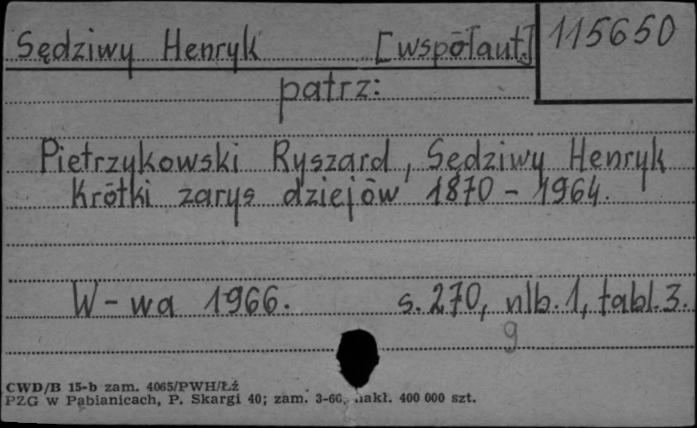 Sędziwy Henryk [współaut.] 115650
patrz:
Pietrzykowski Ryszard, Sędziwy Henryk
Krótki zarys dziejów 1870 - 1964.
W-wa 1966. s. 270, nlb. 1, tabl. 3.
9
CWD/B 15-b zam. 4065/PWH/Łź
PZG w Pabianicach, P. Skargi 40; zam. 3-66, nakł. 400 000 szt.